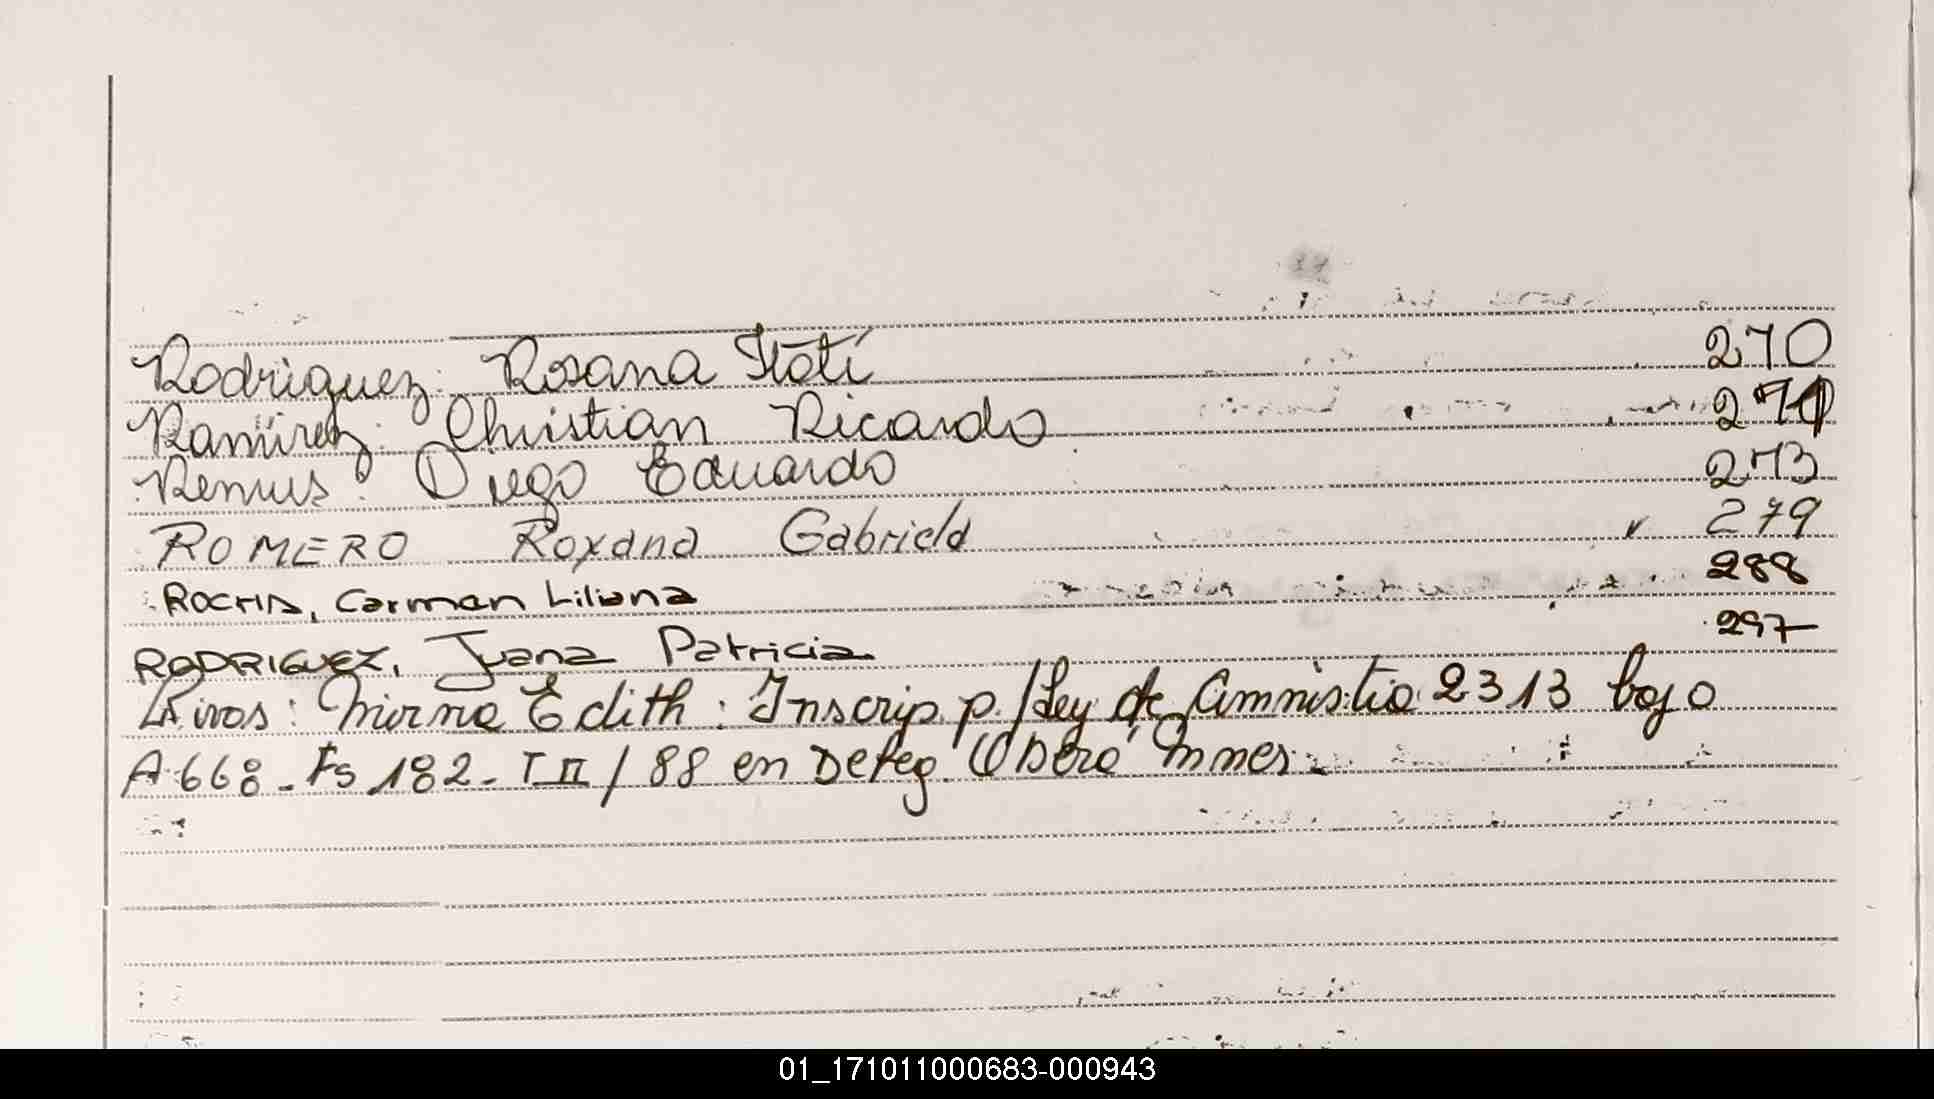 Rodriguez: Rosana Itatí 270
Ramírez: Christian Ricardo 271
Remus: Diego Eduardo 273
ROMERO Roxana Gabriela 279
ROCHA, Carmen Liliana 288
RODRIGUEZ, Juana Patricia 297
Rivas: Mirna Edith: Inscrip. p./Ley de Amnistia 2313 bajo
A.668-Fs 182-T II/88 en Deleg. Oberá Mnes
01_171011000683-000943